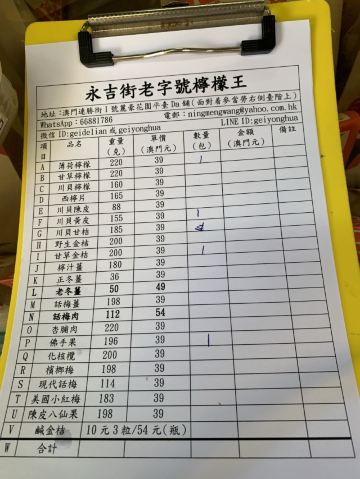 永吉街老字號檸檬王
地址:澳門連勝街1號麗豪花園平臺Du舖(面對着麥當勞右側臺階上)
WhatsApp:66881786 電郵:ningmengwang@yahoo.com.hk
微信ID:geidelian或geiyonghua LINE ID:geiyonghua
項目 品名 重量(克) 單價(澳門元) 數量(包) 金額(澳門元) 備註
A 薄荷檸檬 220 39 1
B 甘草檸檬 220 39
C 川貝檸檬 160 39
D 西檸片 165 39
E 川貝陳皮 88 39
F 川貝黃皮 155 39 1
G 川貝甘桔 185 39
H 野生金桔 200 39
I 甘草金桔 200 39 1
J 檸汁薑 180 39
K 正冬薑 36 39
L 老冬薑 50 49
M 話梅薑 198 39
N 話梅肉 112 54
O 杏脯肉 220 39
P 佛手果 196 39 1
Q 化核欖 200 39
R 檳榔梅 198 39
S 現代話梅 114 39
T 美國小紅梅 183 39
U 陳皮八仙果 198 39
V 鹹金桔 10元3粒/54元(瓶)
W 合計